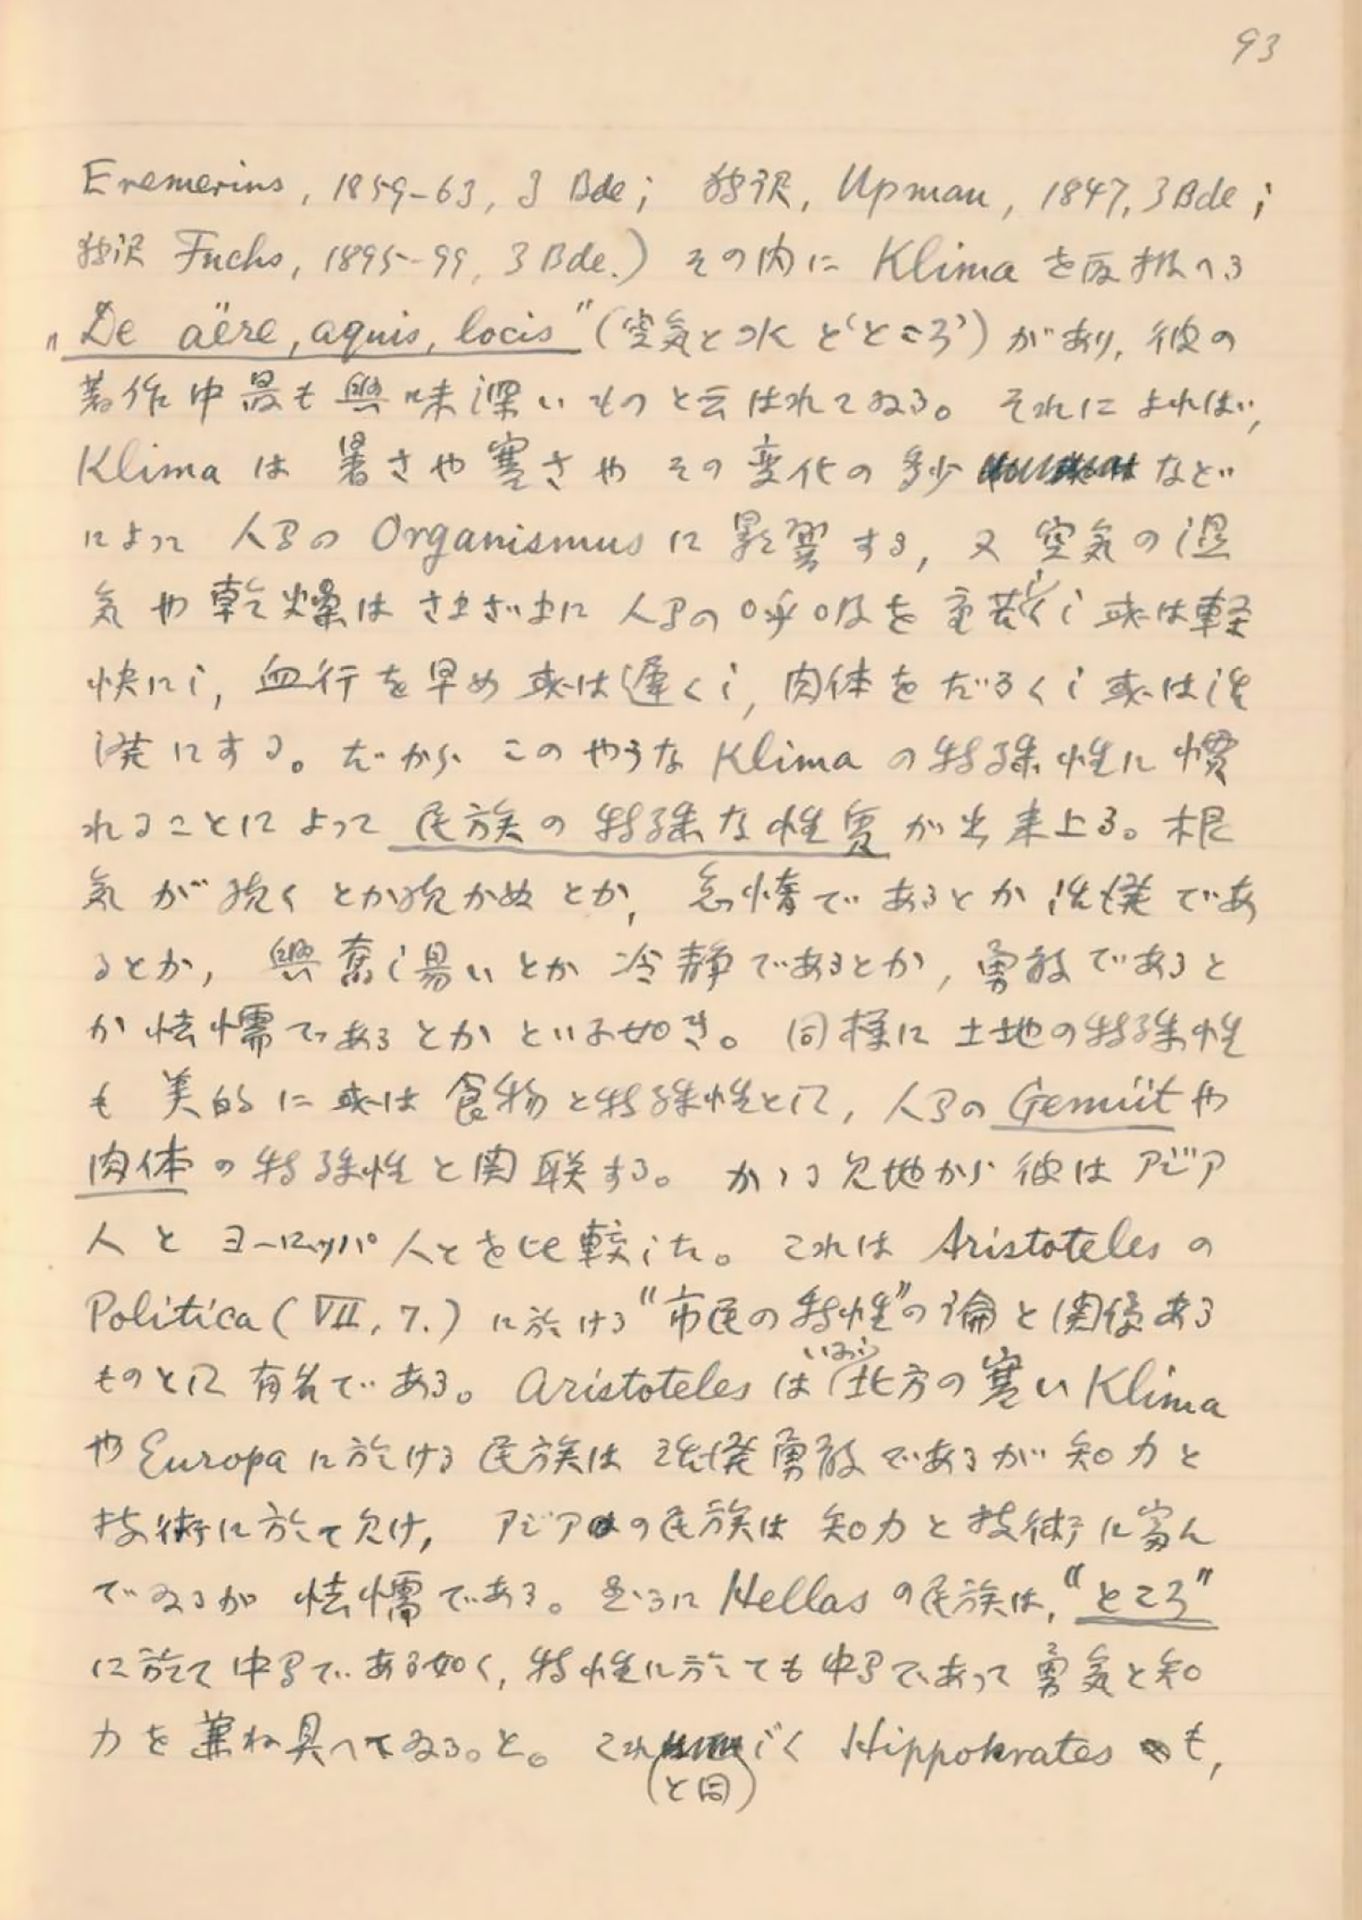 93
Eremerius, 1859-63, 3 Bde; 独訳, Upman, 1847, 3 Bde;
独訳 Fuchs, 1895-99, 3 Bde.) その内に Klima を取扱へる
"De aëre, aquis, locis" (空気と水と‘ところ’) があり, 彼の
著作中最も興味深いものと云はれてゐる。それによれば,
Klima は暑さや寒さやその変化の多少などに
によつて人間の Organismus に影響する, 又空気の湿
気や乾燥はさまざまに人間の呼吸を重苦しくし或は軽
快にし, 血行を早め或は遅くし, 肉体をだるくし或は活
溌にする。だからこのやうな Klima の特殊性に慣
れることによつて民族の特殊な性質が出来上る。根
気が続くとか続かぬとか, 怠惰であるとか活溌であ
るとか, 興奮し易いとか冷静であるとか, 勇敢であると
か怯懦であるとかといふ如き。同様に土地の特殊性
も美的に或は食物と特殊性として, 人間の Gemüt や
肉体の特殊性と関联する。かゝる見地から彼はアジア
人とヨーロッパ人とを比較した。これは Aristoteles の
Politica (VII, 7.) に於ける“市民の特性”の論と関係ある
ものとして有名である。Aristoteles はいふ、北方の寒い Klima
や Europa に於ける民族は活溌勇敢であるが知力と
技術に於て欠け, アジアの民族は知力と技術に富ん
でゐるが怯懦である。然るに Hellas の民族は, “ところ”
に於て中間である如く, 特性に於ても中間であつて勇気と知
力を兼ね具へてゐる。と。これ(と同)じく Hippokrates も,